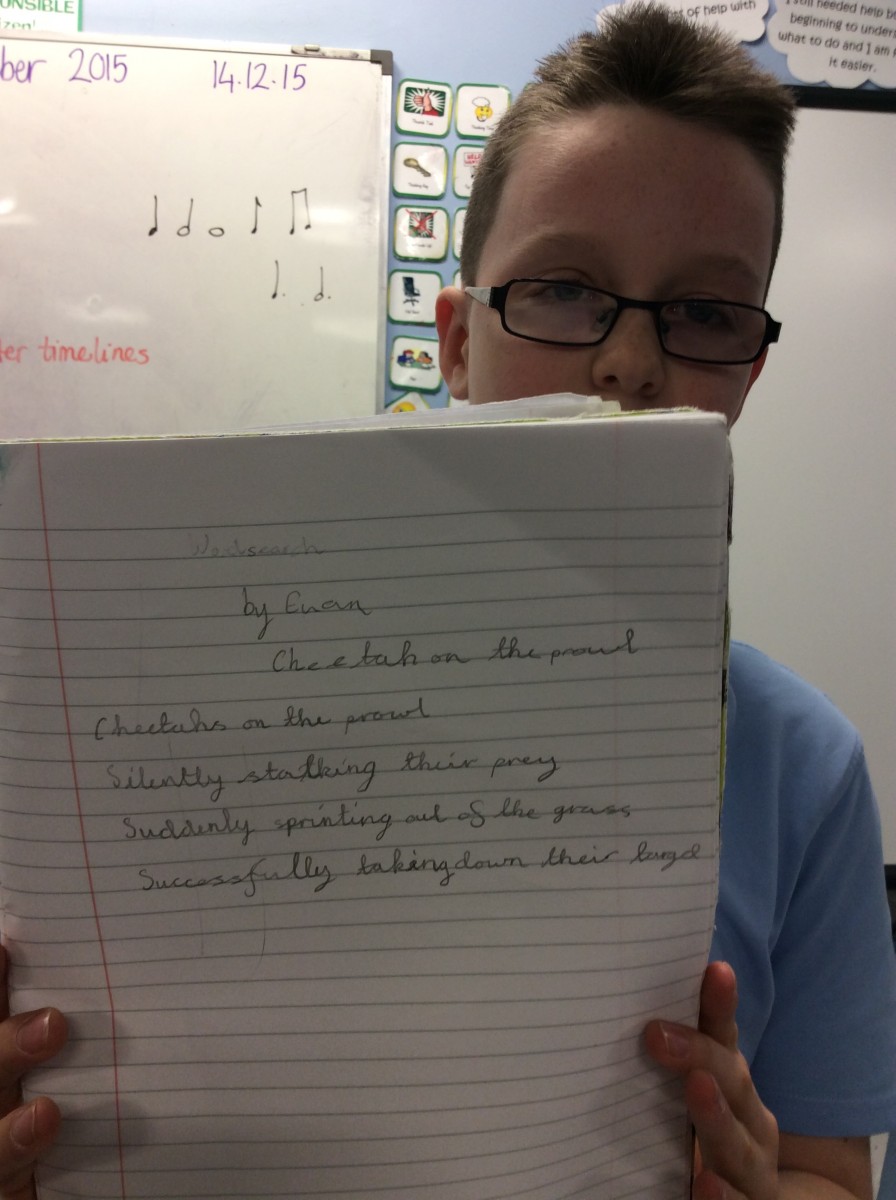 ONSIBLE
izen!
ber 2015 14.12.15
of help with
I still needed help b
beginning to unders
what to do and I am
it easier.
ter timelines
Wordsearch
by Euan
Cheetah on the prowl
Cheetahs on the prowl
Silently stalking their prey
Suddenly sprinting out of the grass
Successfully taking down their